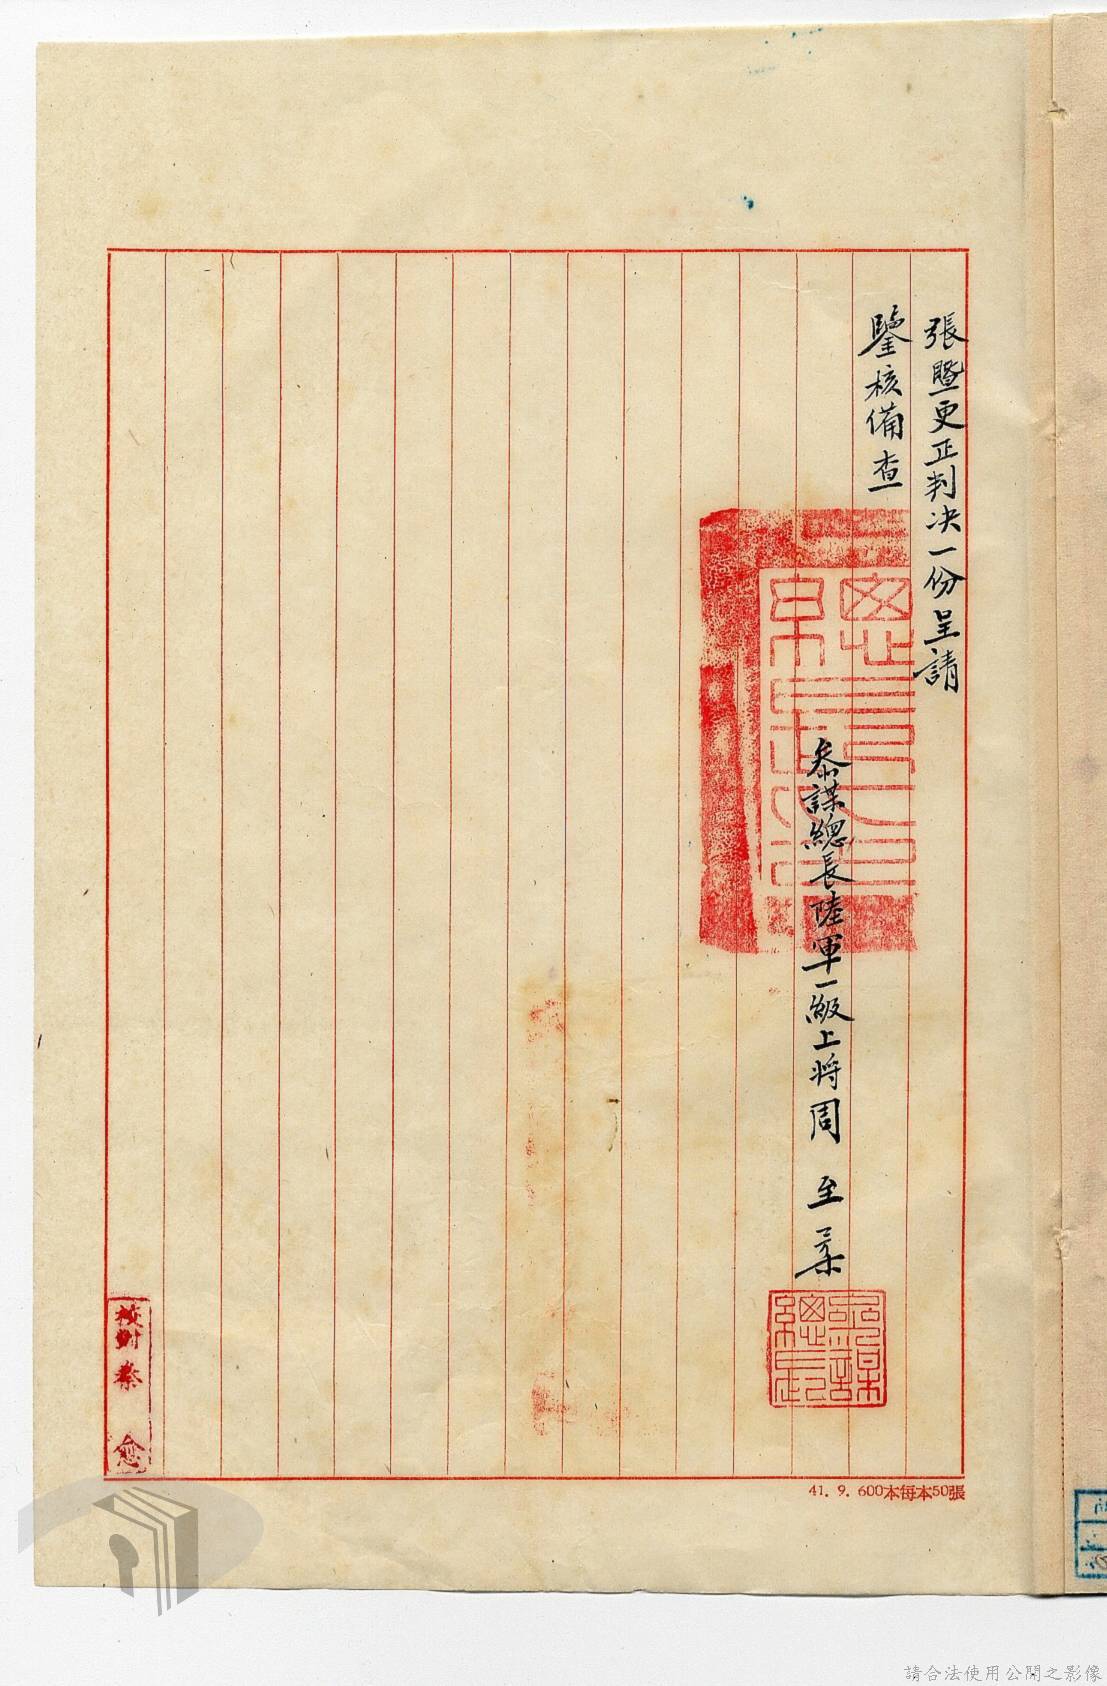 張暨更正判决一份呈請
鑒核備查
參謀總長陸軍一級上將周至柔
參謀總長
校對秦 愈
41. 9. 600本每本50張
請合法使用公開之影像